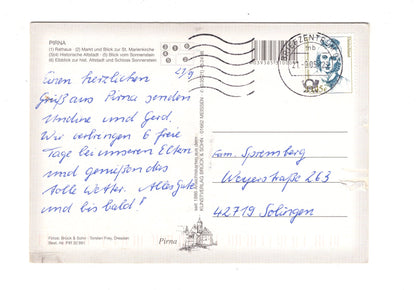 PIRNA
(1) Rathaus · (2) Markt und Blick zur St. Marienkirche
(3/4) Historische Altstadt · (5) Blick vom Sonnenstein
(6) Elbblick zur hist. Altstadt und Schloss Sonnenstein
Einen herzlichen
Gruß aus Pirna senden
Undine und Gerd.
Wir verbringen 6 freie
Tage bei unseren Eltern
und genießen das
tolle Wetter. Alles Gute
und bis bald!
Fam. Spremberg
Weyerstraße 263
42719 Solingen
KUNSTVERLAG BRÜCK & SOHN · 01662 MEISSEN
BRIEFZENTRUM
Pirna
Fotos: Brück & Sohn · Torsten Frey, Dresden